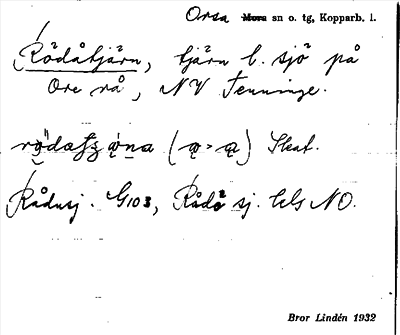 Orsa Mora sn o. tg, Kopparb. l.
Rödåtjärn, tjärn l. sjö på
Ore rå, NV Tenninge.
Skat.
Rådusj. G103, sj. bls NO.
Bror Lindén 1932